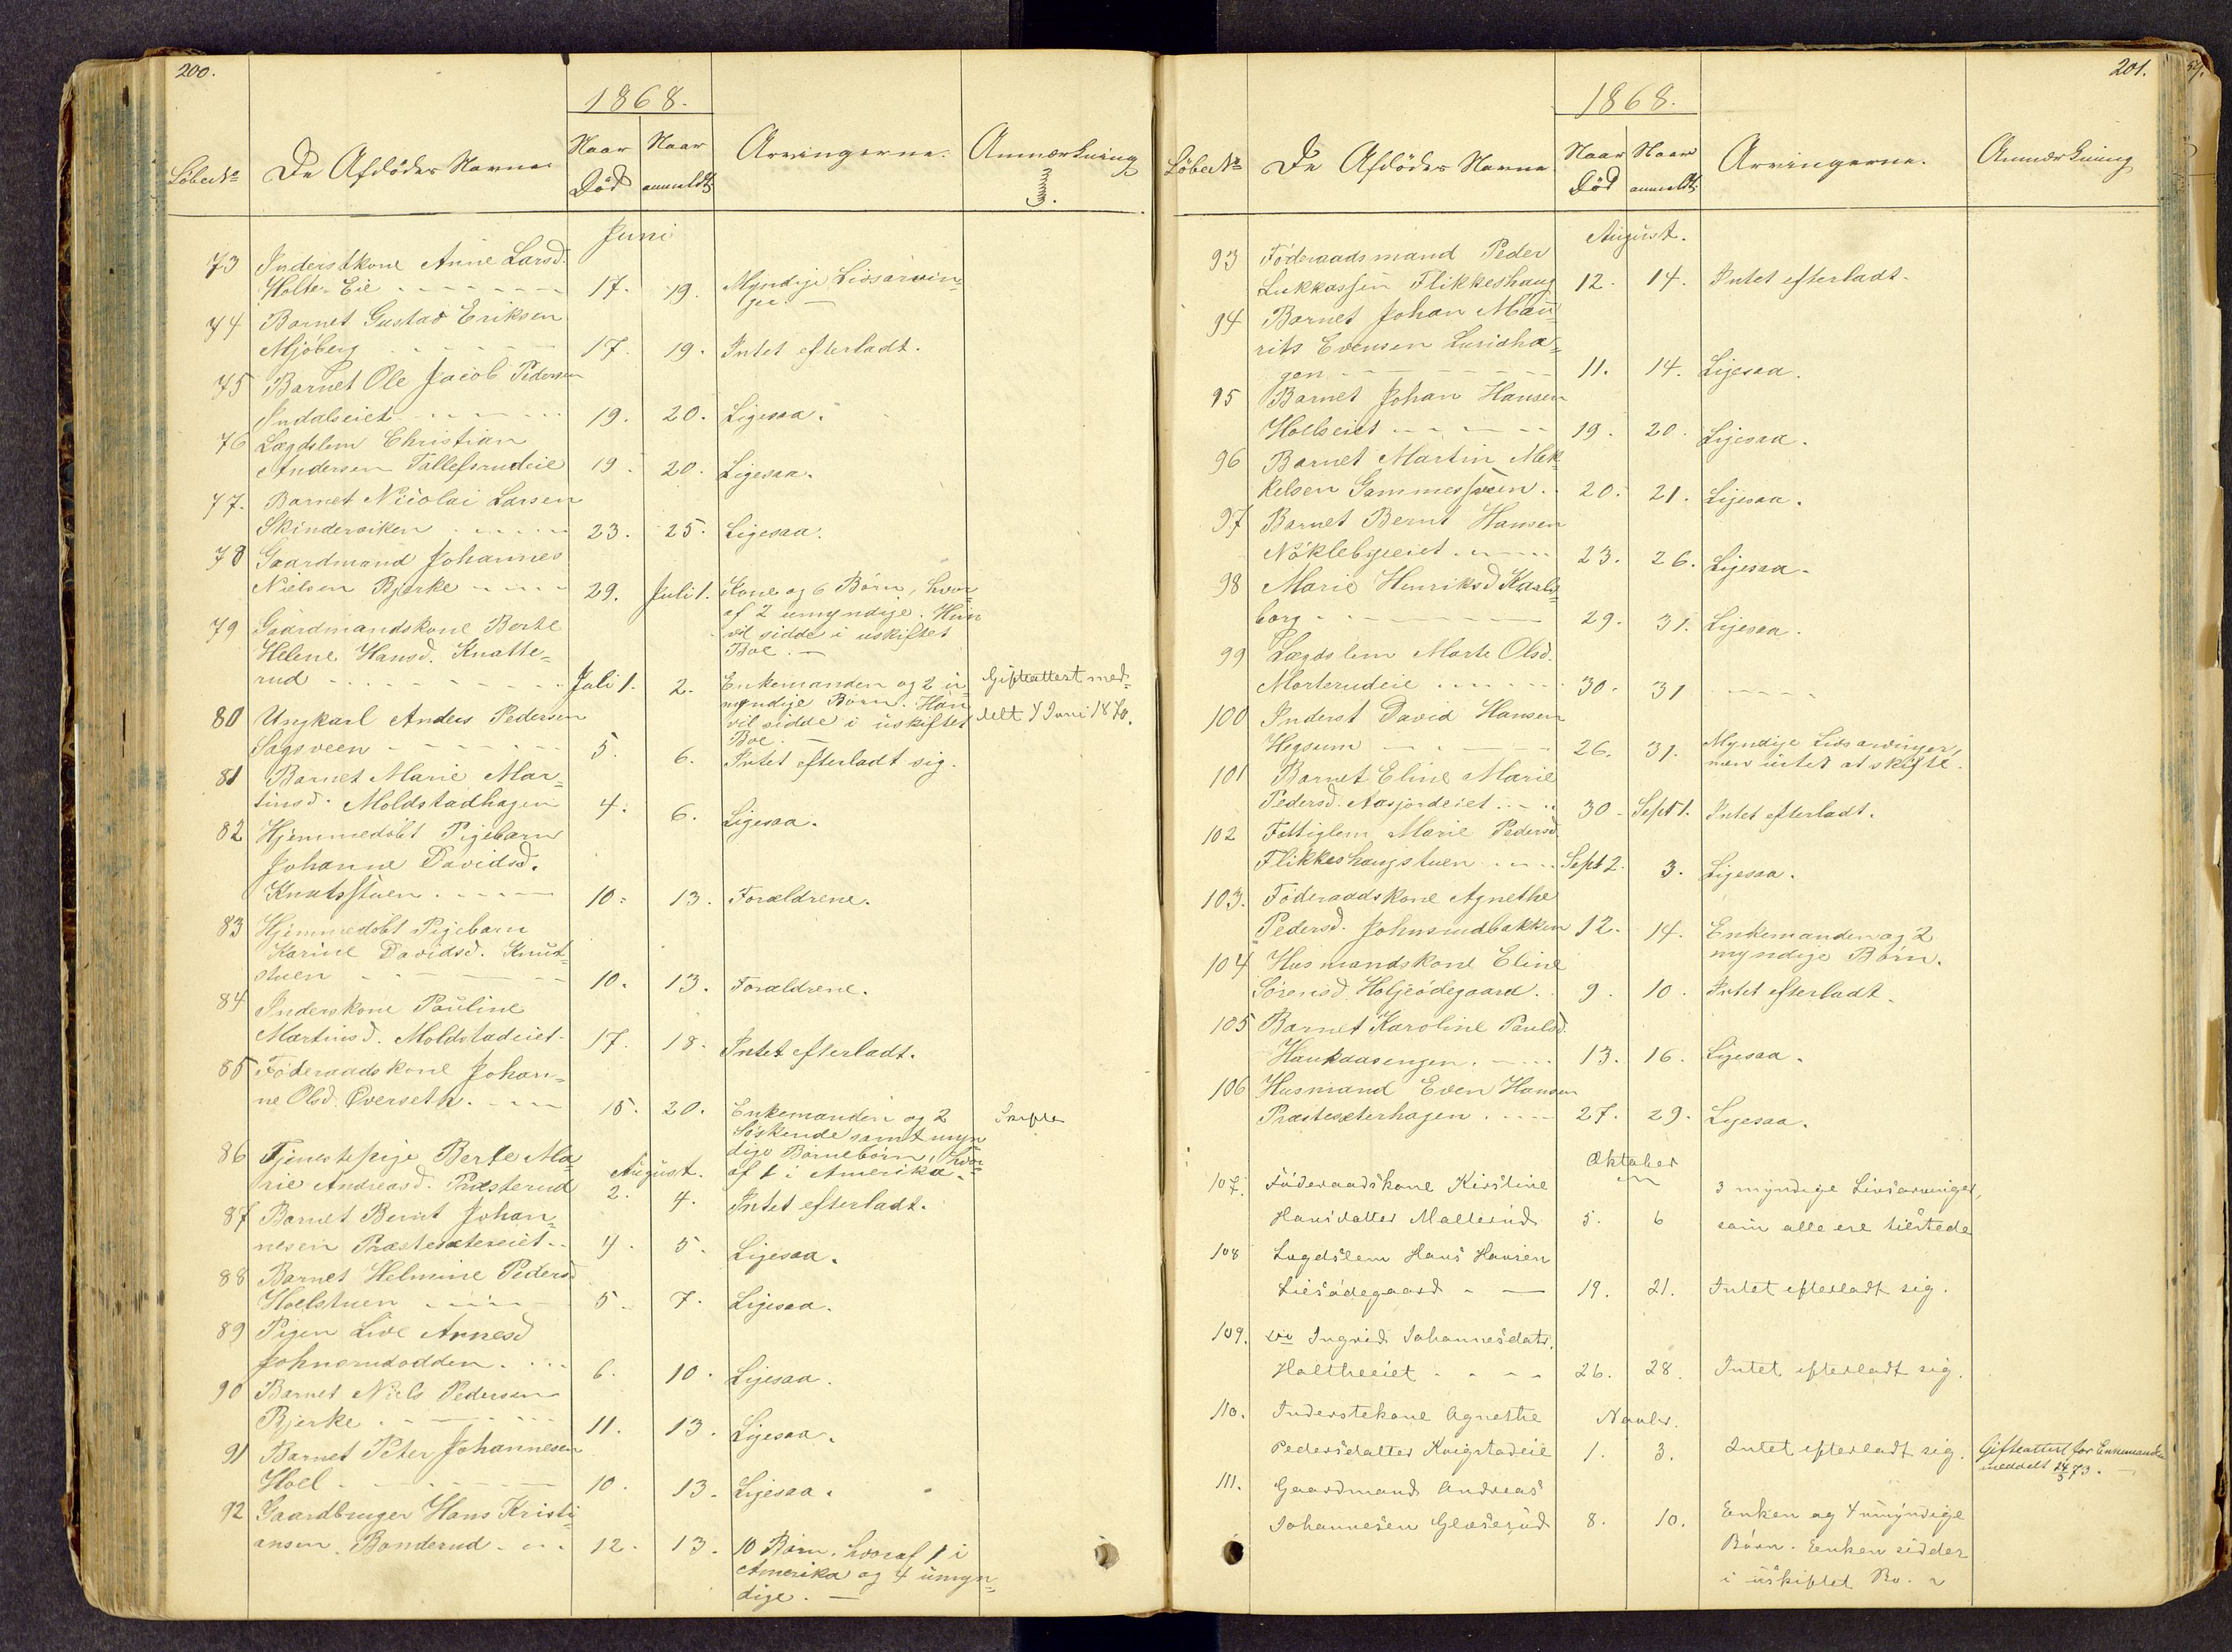 200.
1868.
Løbe No De Afdødes Navne Naar Død Naar anmeldt Arvingerne. Anmærkning
Juni
73 Inderstkone Anne Larsd.
Holte-Eie 17. 19. Myndige Livsarvin-
ger.
74 Barnet Gustav Eriksen
Mjøberg 17. 19. Intet efterladt.
75 Barnet Ole Jacob Pedersen
Indalseiet 19. 20. Ligesaa.
76 Lægdslem Christian
Andersen Tallefsrudeie 19. 20. Ligesaa.
77. Barnet Nicolai Larsen
Skinderviken 23. 25. Ligesaa.
78 Gaardmand Johannes
Nielsen Bjerke 29. Juli 1. Kone og 6 Børn, hvor-
af 2 umyndige. Hun
vil sidde i uskiftet
Boe.
79 Gaardmandskone Berte
Helene Hansd. Knatte-
rud Juli 1. 2. Enkemanden og 2 u- Gifteattest med-
myndige Børn. Han
vil sidde i uskiftet delt 7 Juni 1870.
Boe.
80 Ungkarl Anders Pedersen
Sagsveen 5. 6. Intet efterladt sig.
81 Barnet Marie Mar-
tinsd. Moldstadhagen 4. 6. Ligesaa.
82 Hjemmedøbt Pigebarn
Johanne Davidsd.
Knutsstuen 10. 13. Forældrene.
83 Hjemmedøbt Pigebarn
Karine Davidsd. Knut-
stuen 10. 13. Forældrene.
84 Inderskone Pauline
Martinsd. Moldstadeiet 17. 18. Intet efterladt.
85 Føderaadskone Johan-
ne Olsd. Qverseth 15. 20. Enkemanden og 2
Søskende samt myn
dige Børnebørn, hvor-
af 1 i Amerika.
86 Tjenestepige Berte Ma- August.
rie Andreasd. Præsterud 2. 4. Intet efterladt.
87 Barnet Bernt Johan-
nesen Præstesætereiet 4. 5. Ligesaa.
88 Barnet Helmine Pedersd
Hoelstuen 5. 7. Ligesaa.
89 Pigen Live Arnesd
Johnsrudodden 6. 10. Ligesaa.
90 Barnet Niels Pedersen
Bjerke 11. 13. Ligesaa.
91 Barnet Peter Johannesen
Hoel 10. 13. Ligesaa.
92 Gaardbruger Hans Kristi-
ansen Bonderud 12. 13. 10 Børn, hvoraf 1 i
Amerika og 4 umyn-
dige.
201.
1868.
Løbe No De Afdødes Navne. Naar Død Naar anmeldt Arvingerne. Anmærkning
August.
93 Føderaadsmand Peder
Lukkassen Flikkeshaug 12. 14. Intet efterladt.
94 Barnet Johan Mau-
rits Evensen Lusidha-
gen 11. 14. Ligesaa.
95 Barnet Johan Hansen
Hoelseiet 19. 20. Ligesaa.
96 Barnet Martin Mek-
kelsen Gammesveen 20. 21. Ligesaa.
97 Barnet Bernt Hansen
Nøklebyeiet 23. 26. Ligesaa.
98 Marie Henriksd Karls-
borg 29. 31. Ligesaa.
99 Lægdslem Marte Olsd.
Morterudeie 30. 31
100 Inderst David Hansen
Hegsum 26. 31. Myndige Livsarvinger,
men intet at skifte.
101 Barnet Eline Marie
Pedersd. Aasjordeiet 30 Sept 1. Intet efterladt.
102 Fattiglem Marie Pedersd.
Flikkeshaugstuen Sept 2. 3. Ligesaa.
103. Føderaadskone Agnethe
Pedersd. Johnsrudbakken 12. 14. Enkemanden og 2
myndige Børn.
104 Husmandskone Eline
Sørensd. Holjeødegaard 9. 10. Intet efterladt.
105 Barnet Karoline Paulsd.
Haukaasengen 13. 16. Ligesaa.
106 Husmand Even Hansen
Præstesæterhagen 27. 29. Ligesaa.
Oktober
107. Føderaadskone Kirstine 3 myndige Livsarvinger,
Hansdatter Mallerud 5. 6 som alle ere tilstede
108 Lægdslem Hans Hansen
Liesødegaard 19. 21. Intet efterladt sig.
109. Ingrid Johannesdatr.
Holtheeiet 26. 28. Intet efterladt sig.
110. Inderstekone Agnethe Novbr.
Pedersdatter Kvigstadeie 1. 3. Intet efterladt sig. Gifteattest for Enkemanden
meddelt 24/5 73.
111. Gaardmand Andreas
Johannesen Gloserud 8. 10. Enken og 4 umyndige
Børn. Enken sidder
i uskiftet Bo.